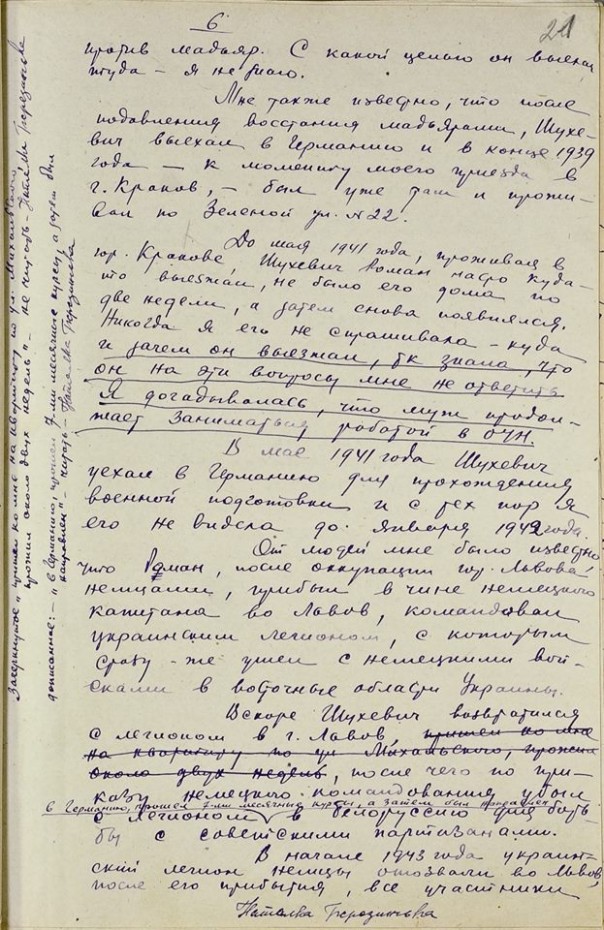 6
21
против мадьяр. С какой целью он выехал
туда – я не знаю.
Мне также известно, что после
подавления восстания мадьярами, Шухе-
вич выехал в Германию и в конце 1939
года – к моменту моего приезда в
г. Краков, – был уже там и прожи-
вал по Зеленой ул. № 22.
До мая 1941 года, проживая в
гор. Кракове, Шухевич Роман часто куда-
то выезжал, не было его дома по
две недели, а затем снова появлялся.
Никогда я его не спрашивала – куда
и зачем он выезжал, тк знала, что
он на эти вопросы мне не ответит
Я догадывалась, что муж продол-
жает заниматься работой в ОУН.
В мае 1941 года Шухевич
уехал в Германию для прохождения
военной подготовки и с тех пор я
его не видела до января 1942 года.
От людей мне было известно
что Роман, после оккупации гор. Львова
немцами, прибыл в чине немецкого
капитана во Львов, командовал
украинским легионом, с которым
сразу-же ушел с немецкими вой-
сками в восточные области Украины.
Вскоре Шухевич возвратился
с легионом в г. Львов, пришел ко мне
на квартиру по ул. Михальского, прожил
около двух недель, после чего по при-
казу немецкого командования убыл
в Германию, прошел 7-ми месячные курсы, а затем был направлен
с легионом в Белоруссию для борь-
бы с советскими партизанами.
В начале 1943 года украин-
ский легион немцы отозвали во Львов,
после его прибытия, все участники
Наталка Березинсква
Зачеркнутое „пришел ко мне на квартиру по ул. Михальского,
прожил около двух недель" – не читать – Наталка Березинсква
дописанное: – „в Германию, прошел 7-ми месячные курсы, а затем был
направлен" – читать – Наталка Березинсква